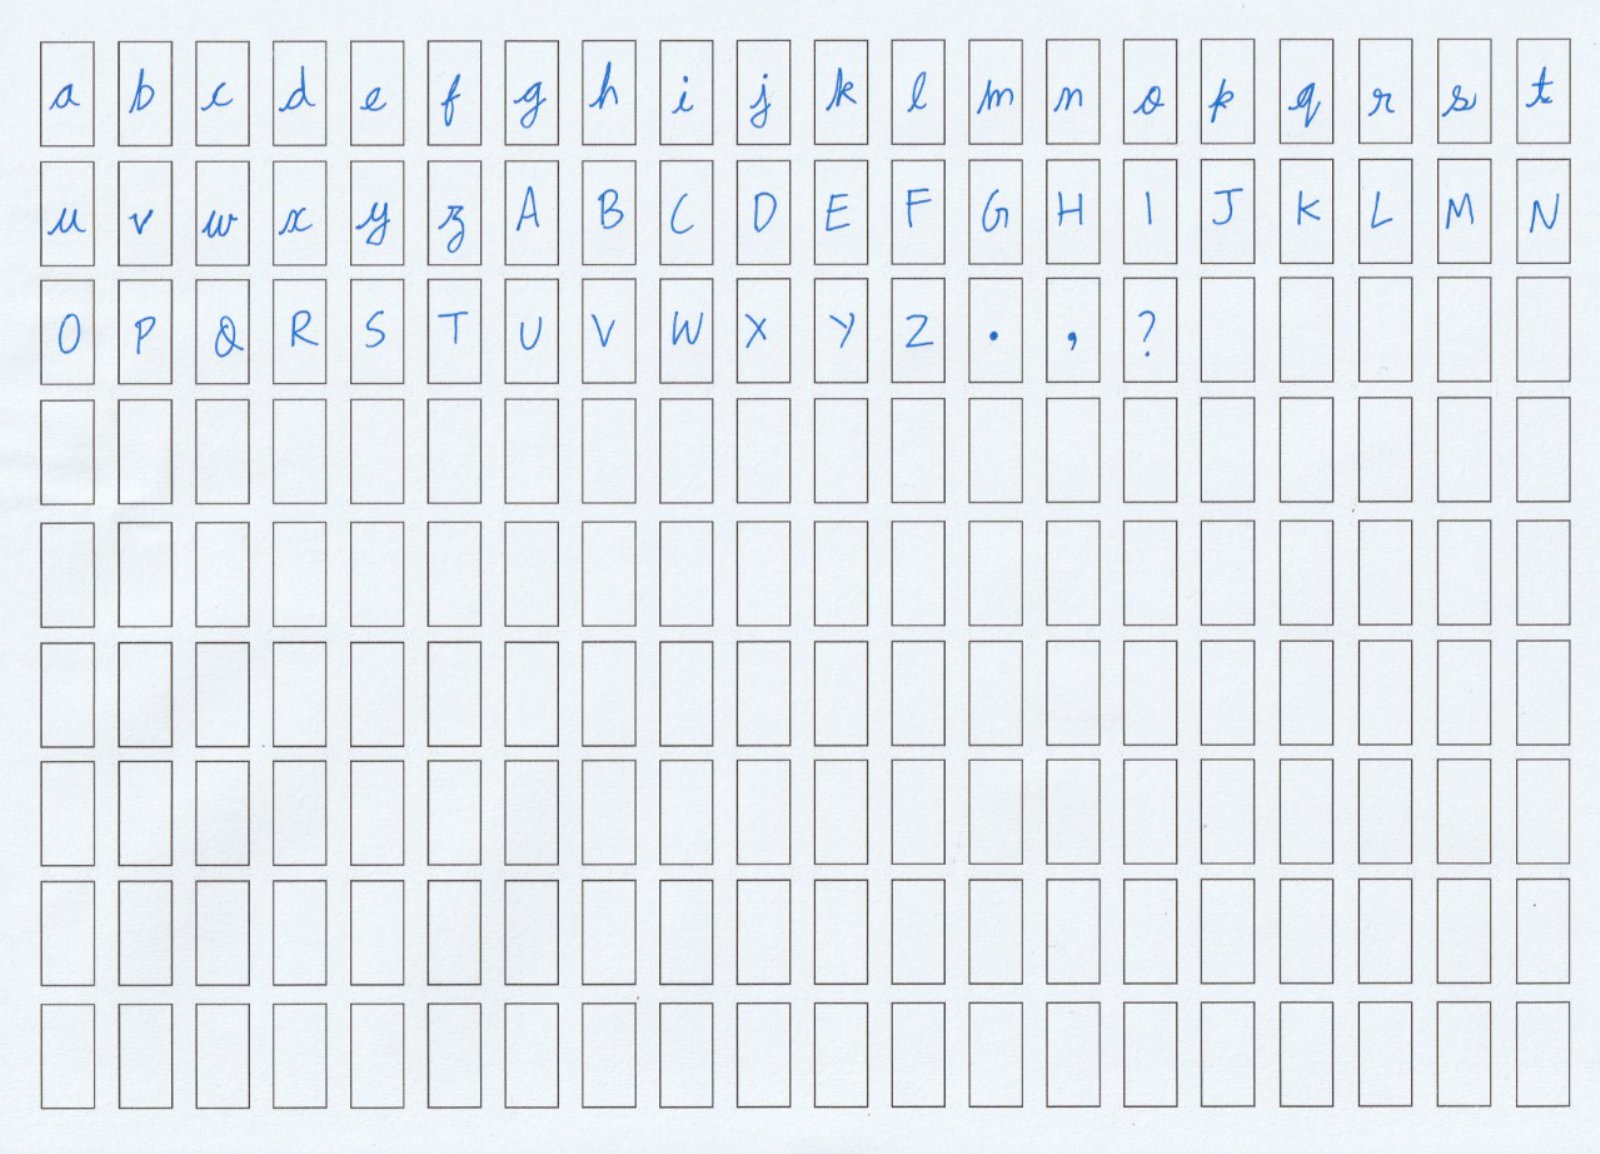 a b c d e f g h i j k l m n o p q r s t
u v w x y z A B C D E F G H I J K L M N
O P Q R S T U V W X Y Z . , ?